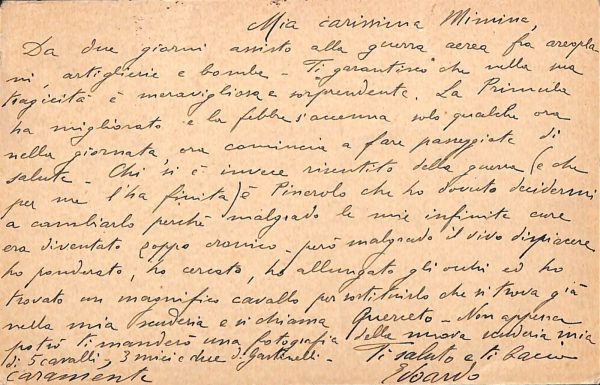 Mia carissima Mimina,
Da due giorni assisto alla guerra aerea fra areopla
ni, artiglierie e bombe - Ti garantisco che nella sua
tragicità è meravigliosa e sorprendente. La Primula
ha migliorato e la febbre s'accenna solo qualche ora
nella giornata, ora comincia a fare passeggiate di
salute - Chi si è invece risentito della guerra (e che
per me l'ha finita) è Pinerolo che ho dovuto decidermi
a cambiarlo perché malgrado le mie infinite cure
era diventato zoppo cronico - però malgrado il vivo dispiacere
ho ponderato, ho cercato, ho allungato gli occhi ed ho
trovato un magnifico cavallo per sostituirlo che si trova già
nella mia scuderia e si chiama Querceto - Non appena
potrò ti manderò una fotografia della nuova scuderia mia
di 5 cavalli, 3 miei e due di - Ti saluto e ti bacio
caramente Edoardo